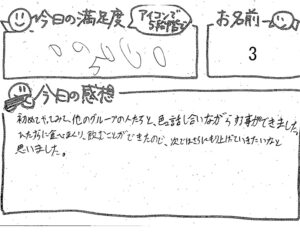 今日の満足度
アイコンで
5段階で
お名前
3
今日の感想
初めてやってみて、他のグループの人たちと、色々話し合いながら行事ができました。
ひたすらに食べまくり、飲むことができたので、次ではさらにもり上げていきたいなと
思いました。